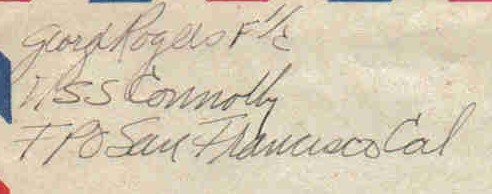 Georg Rogers F 1/c
USS Connolly
FPO San Francisco Cal